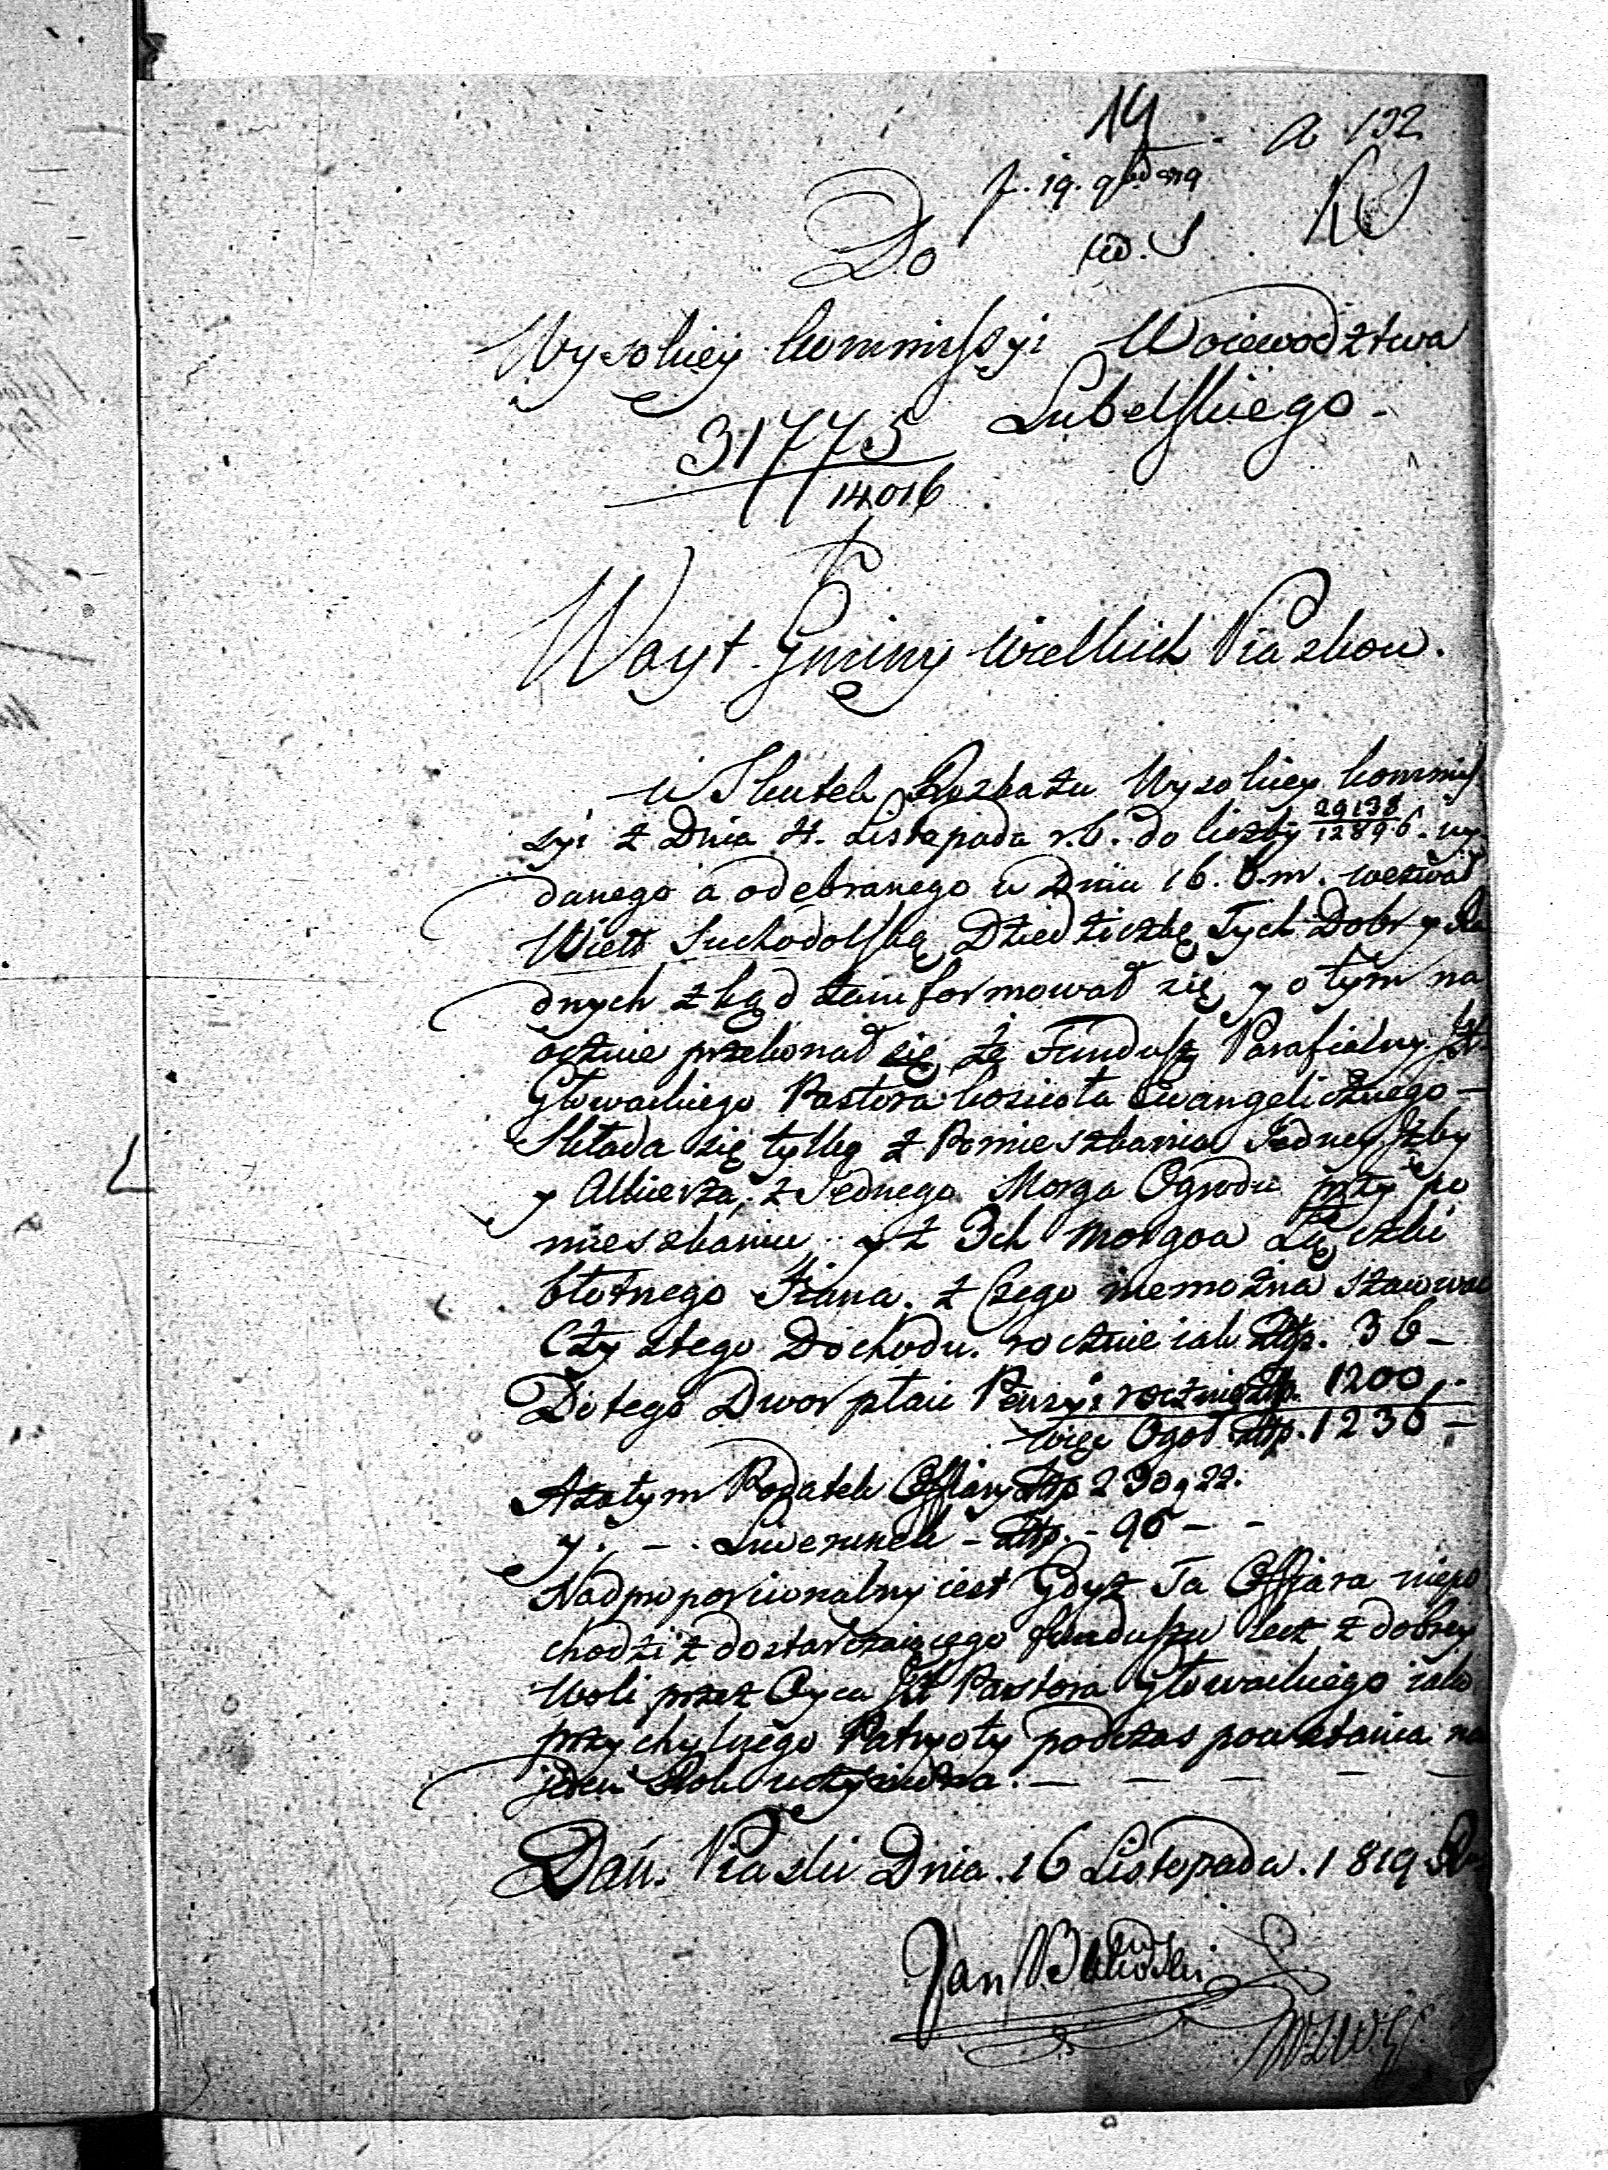 19
Do
Wysokiey Kommissyi Woiewodztwa
Lubelskiego.
31775
14016
Woyt Gminy Wielkich Piaskow.
w Skutek Rozkazu Wysokiey Kommis
syi z Dnia 4. Listopada r.b. do liczby 29138/12896. wy
danego a odebranego w Dniu 16. b.m. wezwał
Wielo Suchodolską Dziedziczkę Tych Dobr y Ra
dnych zkąd zainformował się y o tym na
ocznie przekonał się że Fundusz Parafialny
Głowackiego Pastora koscioła Ewangelicznego —
Składa się tylko z Pomieszkania Jedney Izby
y Alkierza, z Jednego Morga Ogrodu przy po
mieszkaniu y z 3ch Morgow Łączki
błotnego Siana. z Czego niemożna szacowac
Czystego Dochodu rocznie iak Złtp. 36 —
Do tego Dwor płaci Pensyi rocznie Złtp. 1200 ..
więc Ogoł Złtp. 1236 —
Azatym Podatek Offiary Złtp 230 g 22.
y . — . Liwerunek - Złtp. - 96 - -
Nadproporcionalny iest Gdyz Ta Offiara niepo
chodzi z dostarczaiącego funduszu lecz z dobrey
Woli przez Oyca Pastora Głowackiego iako
przychylnego Patryoty podczas powstania na
jeden Rok uczyniona. — — — — —
Dań. Piaski Dnia. 16 Listopada. 1819
Jan